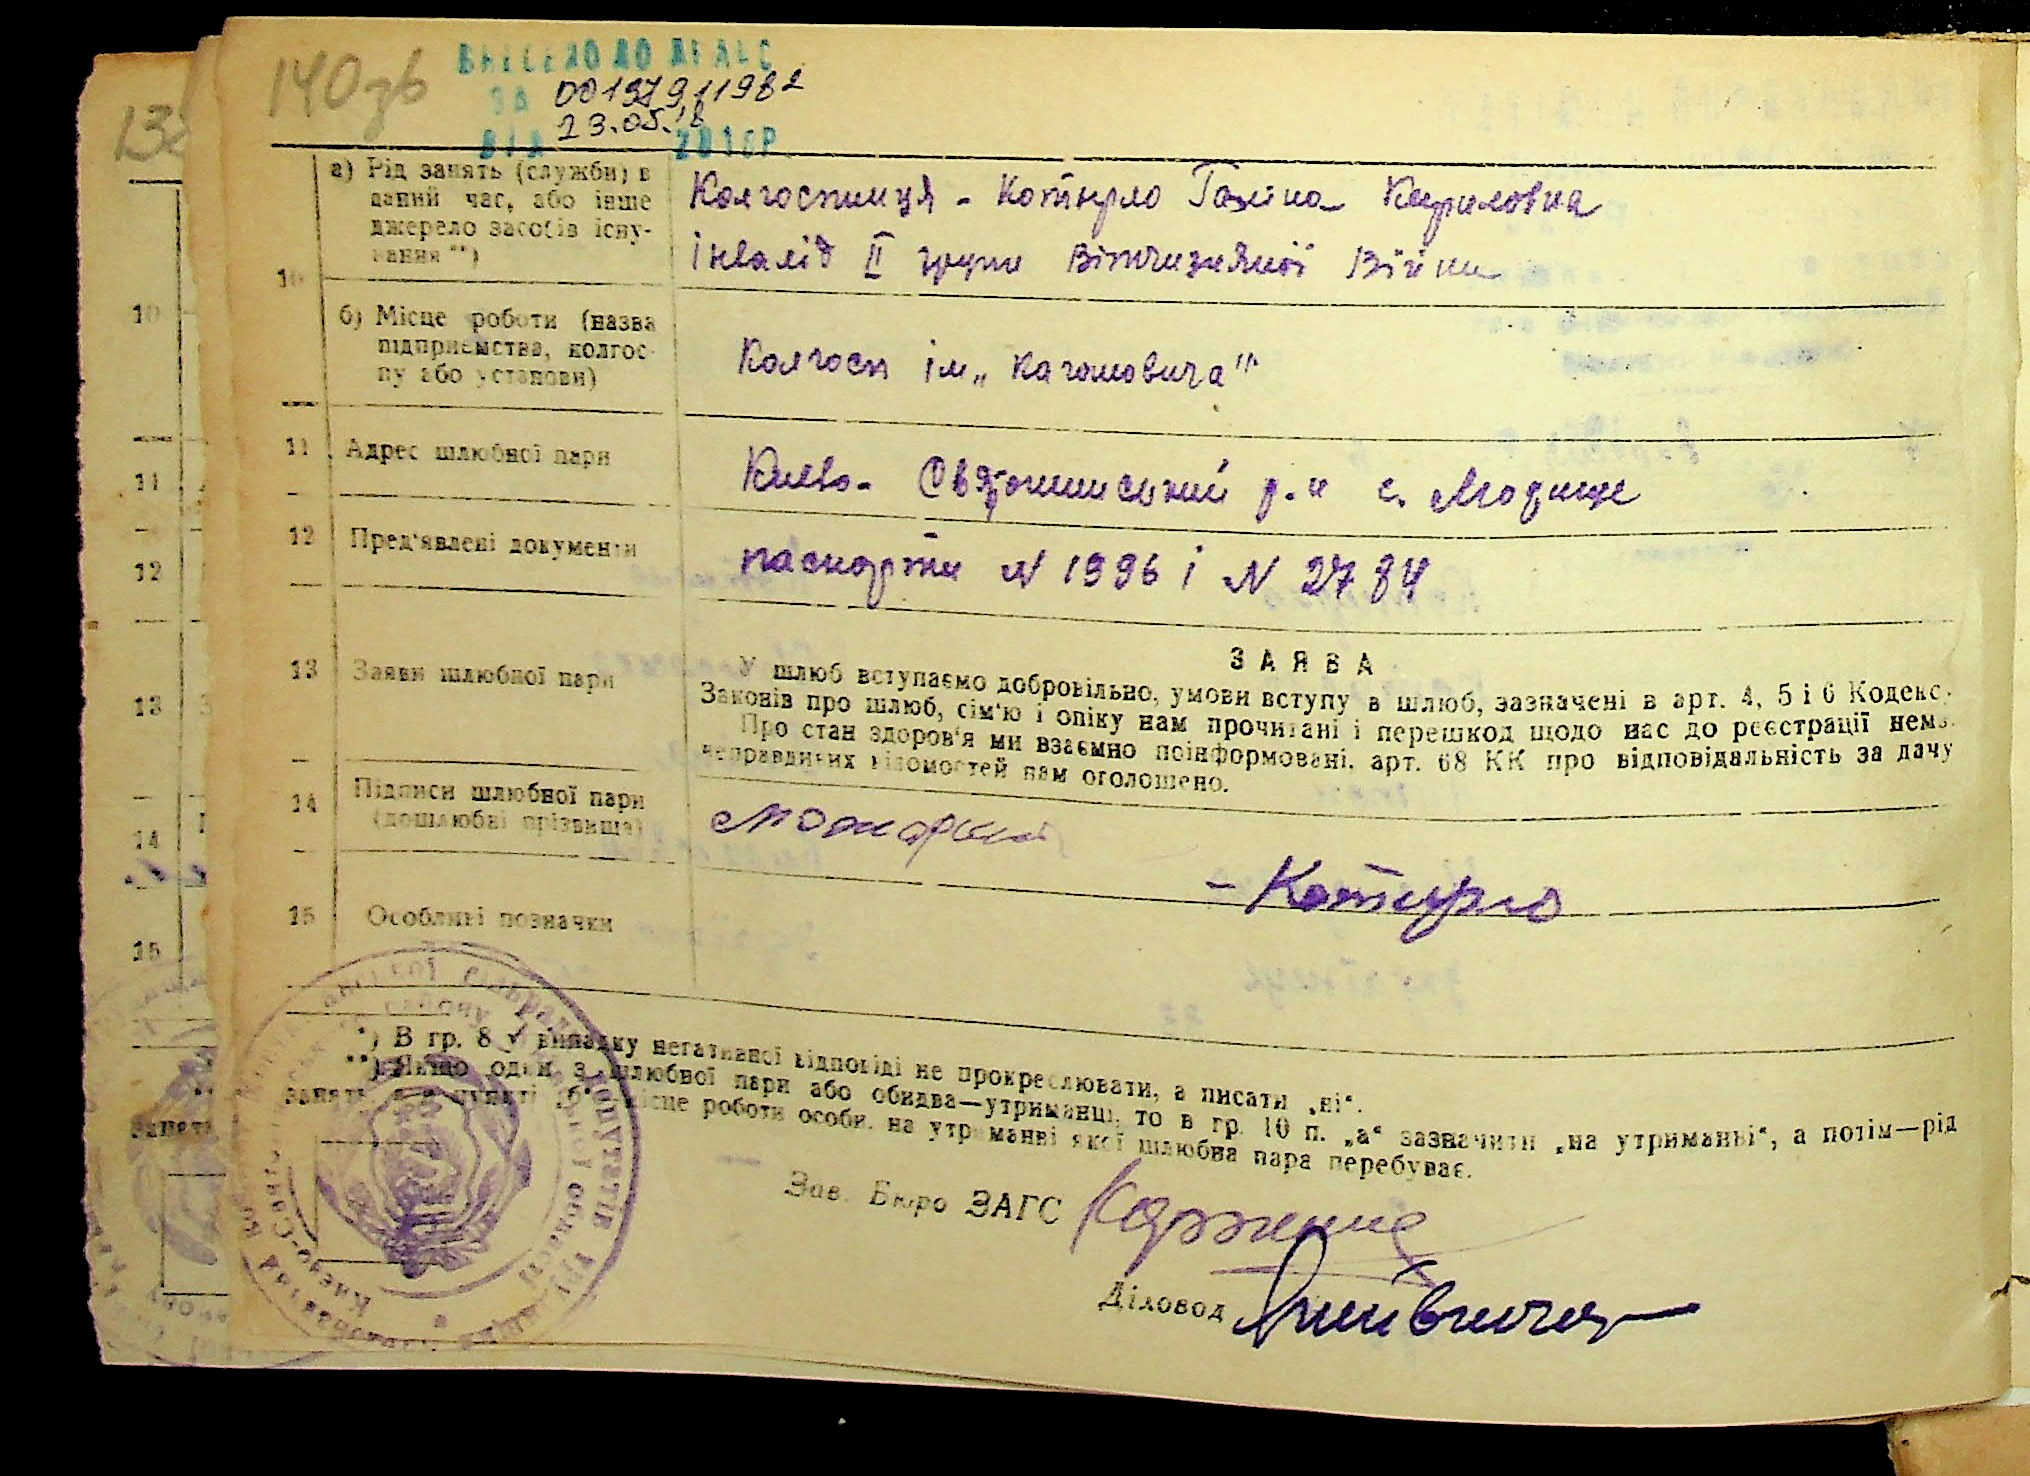 140зв
ВНЕСЕНО ДО ДРАЦС
ЗА 00197911982
ВІД 23.05.18 2018Р.
10
а) Рід занять (служби) в
даний час, або інше
джерело засобів існу-
вання **)
Колгоспниця - Котирло Галина Кириловна
інвалід II групи Вітчизняної Війни
б) Місце роботи (назва
підприємства, колгос-
пу або установи)
Колгосп ім „Кагановича"
11 Адрес шлюбної пари
Києво- Святошинський р-н с. Мощище
12 Пред'явлені документи
паспорти N 1996 і N 2784
13 Заяви шлюбної пари
ЗАЯВА
У шлюб вступаємо добровільно, умови вступу в шлюб, зазначені в арт. 4, 5 і 6 Кодекс
Законів про шлюб, сім'ю і опіку нам прочитані і перешкод щодо нас до реєстрації нема.
Про стан здоров'я ми взаємно поінформовані. арт. 68 КК про відповідальність за дачу
неправдивих відомостей нам оголошено.
14 Підписи шлюбної пари
(дошлюбні прізвища)
- Котирло
15 Особливі позначки
*) В гр. 8 у випадку негативної відповіді не прокреслювати, а писати „ні".
**) Якщо один з шлюбної пари або обидва—утриманці, то в гр. 10 п. „а" зазначити „на утриманні", а потім—рід
занять, а в пункті „б" місце роботи особи, на утриманні якої шлюбна пара перебуває.
Зав. Бюро ЗАГС
Діловод